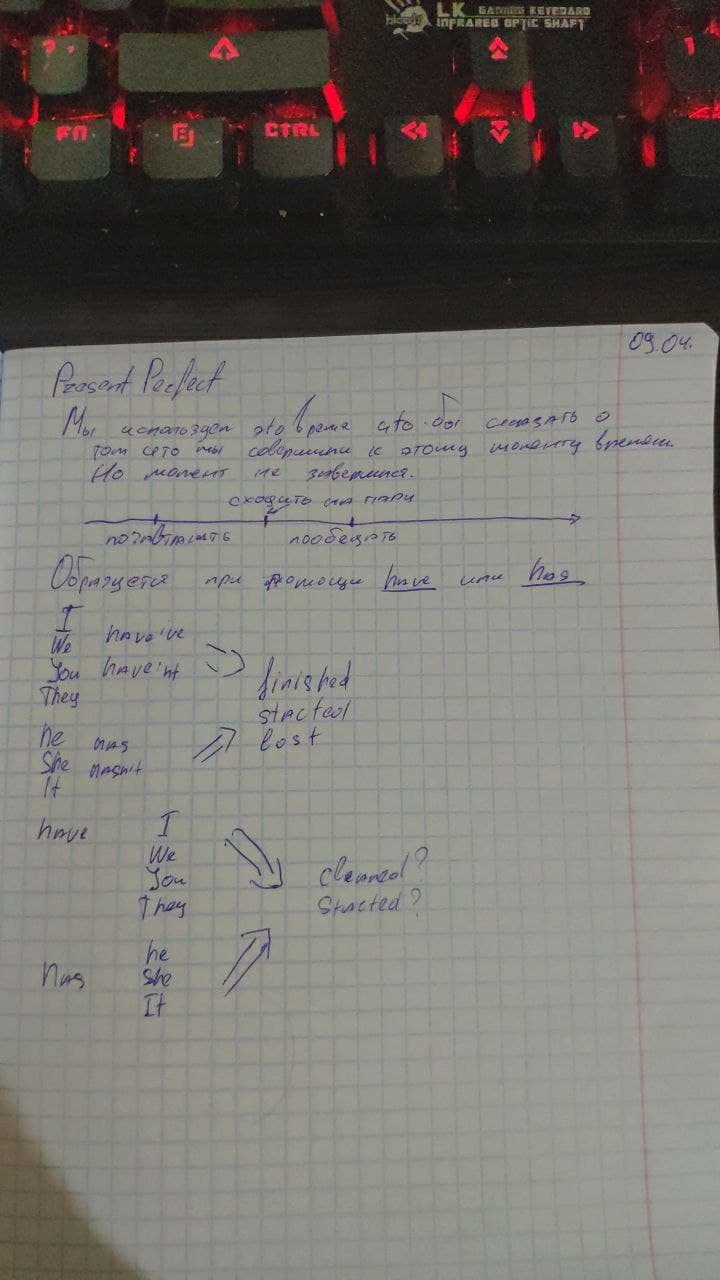 LK GAMING KEYBOARD
bloody INFRARED OPTIC SHAFT
? ,
1
FN
CTRL
09.04.
Present Perfect
Мы используем это время что бы сказать о
том что мы совершили к этому моменту времени.
Но момент не завершился.
сходить на пары
позавтракать пообедать
Образуется при помощи have или has
I
We have've
You have'nt
They
finished
started
lost
he has
She hasn't
It
have I
We
You
They
Cleaned?
Started?
he
Has She
It